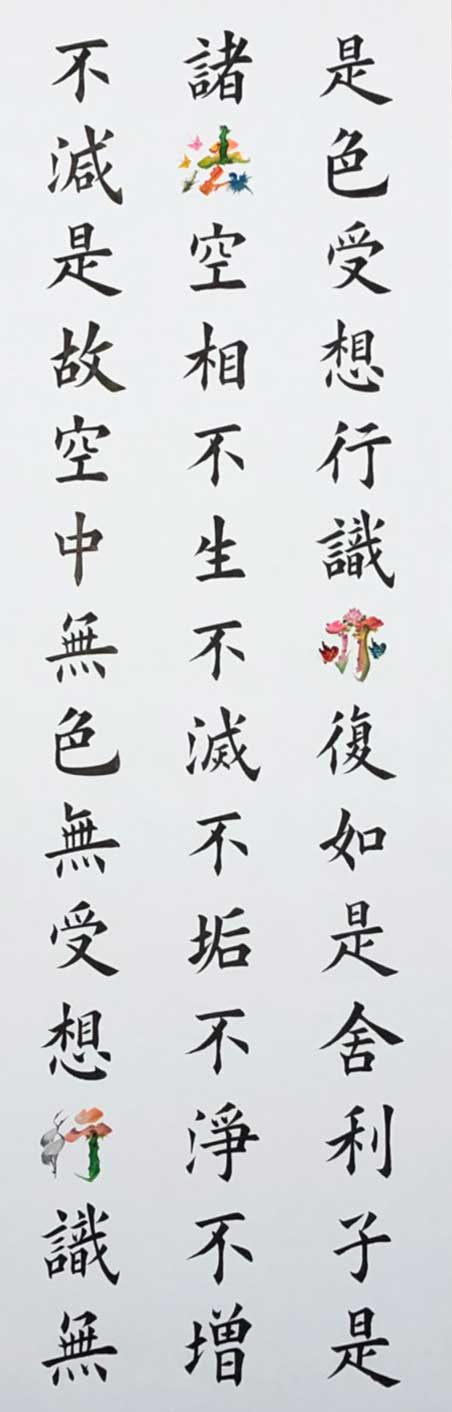 是色受想行識亦復如是舍利子是
諸法空相不生不滅不垢不淨不增
不減是故空中無色無受想行識無